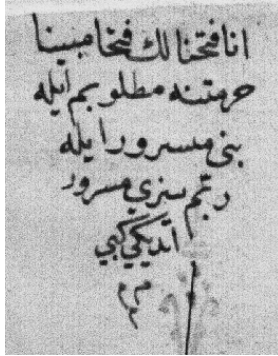 انا فتحنا لك فتحا مبينا
حرمتنه مطلوبم ايله
بنى مسرور ايله
ربم سنري مسرور
اتديكي كبي
م م م